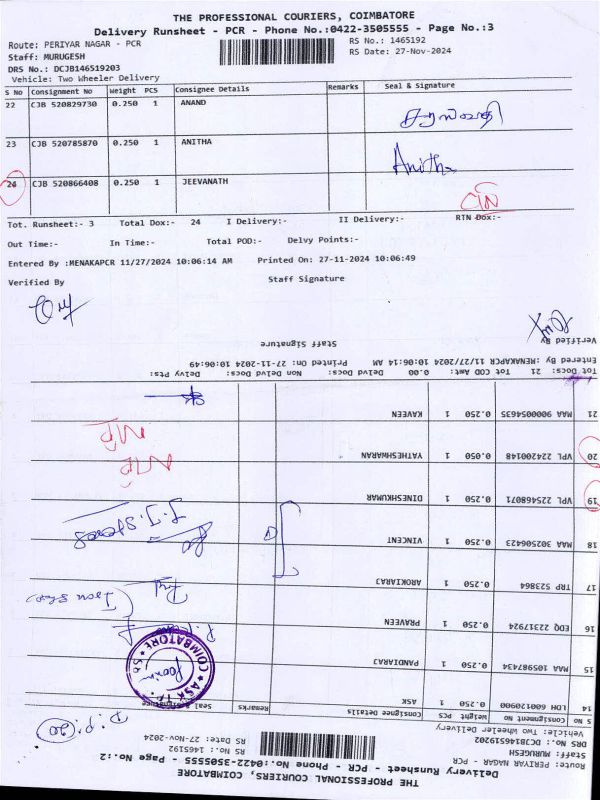 THE PROFESSIONAL COURIERS, COIMBATORE
Delivery Runsheet - PCR - Phone No.:0422-3505555 - Page No.:3
Route: PERIYAR NAGAR - PCR RS No.: 1465192
Staff: MURUGESH RS Date: 27-Nov-2024
DRS No.: DCJB146519203
Vehicle: Two Wheeler Delivery
S No Consignment No Weight PCS Consignee Details Remarks Seal & Signature
22 CJB 520829730 0.250 1 ANAND
23 CJB 520785870 0.250 1 ANITHA Anitha
24 CJB 520866408 0.250 1 JEEVANATH
Tot. Runsheet:- 3 Total Dox:- 24 I Delivery:- II Delivery:- RTN Dox:-
Out Time:- In Time:- Total POD:- Delvy Points:-
Entered By :MENAKAPCR 11/27/2024 10:06:14 AM Printed On: 27-11-2024 10:06:49
Verified By Staff Signature
THE PROFESSIONAL COURIERS, COIMBATORE
Delivery Runsheet - PCR - Phone No.:0422-3505555 - Page No.:2
Route: PERIYAR NAGAR - PCR RS No.: 1465192
Staff: MURUGESH RS Date: 27-Nov-2024
DRS No.: DCJB146519202
Vehicle: Two Wheeler Delivery
S No Consignment No Weight PCS Consignee Details Remarks Seal & Signature
14 LOH 600120900 0.250 1 ASK
COIMBATORE
15 MAA 105987434 0.250 1 PANDIARAJ
16 EDQ 22317924 0.250 1 PRAVEEN
17 TRP 523864 0.250 1 AROKIARAJ
18 MAA 302506423 0.250 1 VINCENT
19 VPL 225468071 0.250 1 DINESHKUMAR
20 VPL 224200148 0.050 1 YATHESHWARAN
21 MAA 900054635 0.250 1 KAVEEN
Tot Docs: 21 Tot COD Amt: 0.00 Delvd Docs: Non Delvd Docs: Delvy Pts:
Entered By :MENAKAPCR 11/27/2024 10:06:14 AM Printed On: 27-11-2024 10:06:49
Verified By Staff Signature